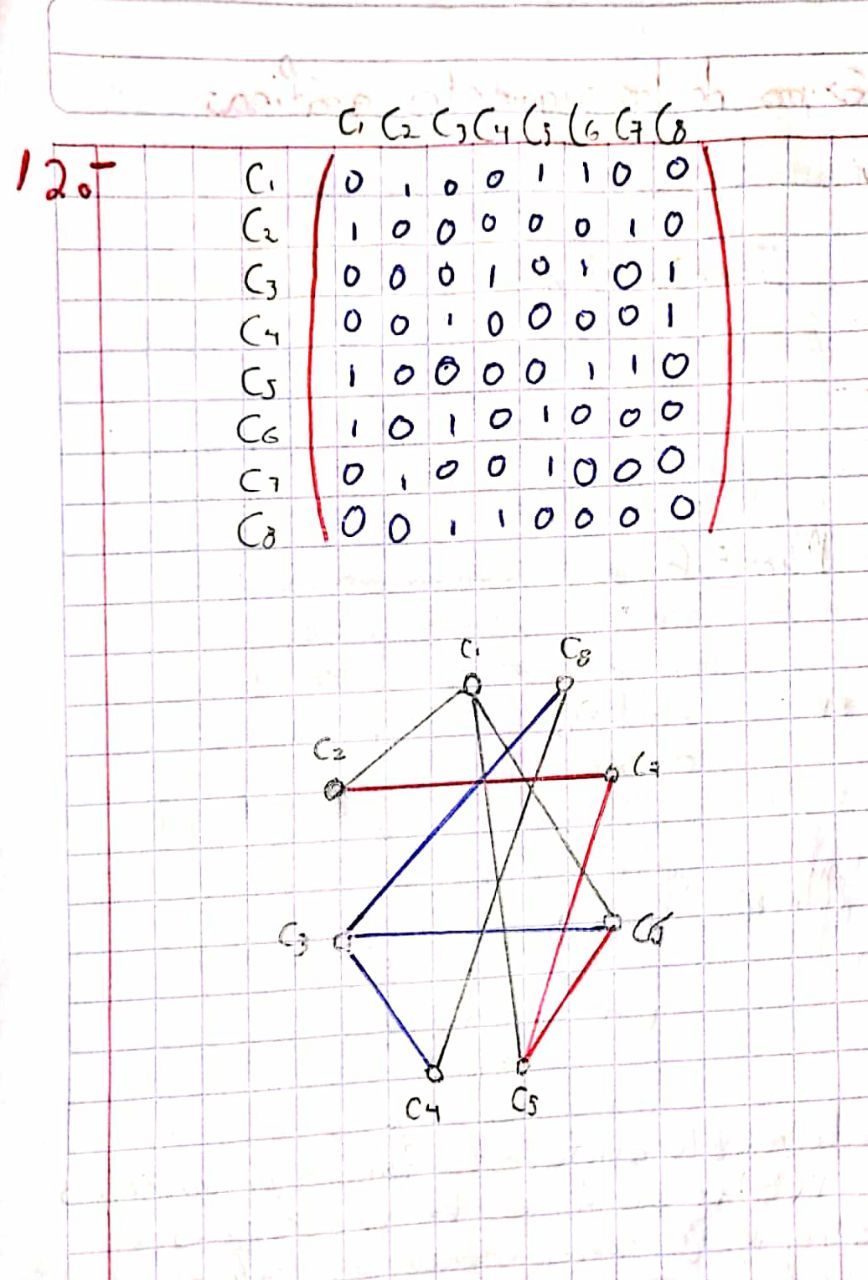 C₁ C₂ C₃ C₄ C₅ C₆ C₇ C₈
12.-
C₁ 0 1 0 0 1 1 0 0
C₂ 1 0 0 0 0 0 1 0
C₃ 0 0 0 1 0 1 0 1
C₄ 0 0 1 0 0 0 0 1
C₅ 1 0 0 0 0 1 1 0
C₆ 1 0 1 0 1 0 0 0
C₇ 0 1 0 0 1 0 0 0
C₈ 0 0 1 1 0 0 0 0
C₁ C₈
C₂ C₇
C₃ C₆
C₄ C₅